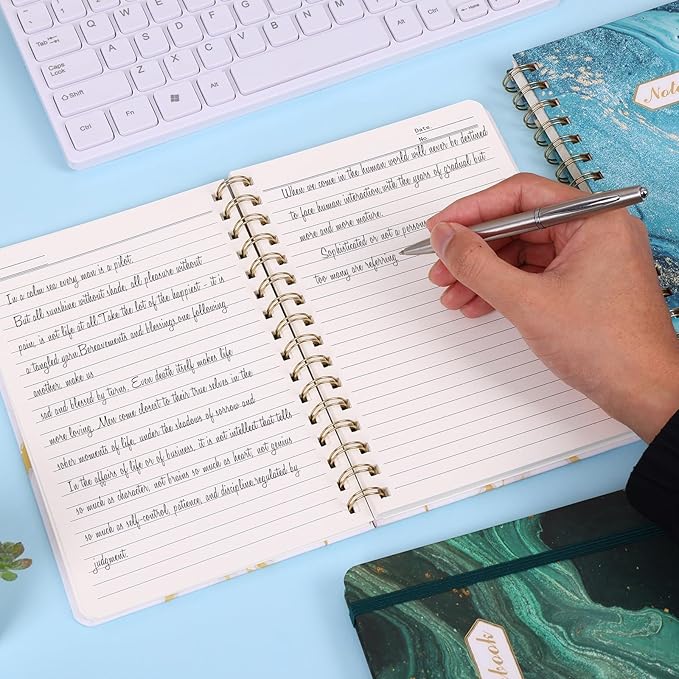 Tab
Caps
Lock
Shift
Ctrl
Fn
Alt
Alt
Ctrl
Q W E R T Y U I O P
A S D F G H J K L
Z X C V B N M
Note
Date
No.
In a calm sea every man is a pilot.
But all sunshine without shade, all pleasure without
pain, is not life at all. Take the lot of the happiest - it is
a tangled yarn. Bereavements and blessings, one following
another, make us
sad and blessed by turns. Even death itself makes life
more loving. Men come closest to their true selves in the
sober moments of life, under the shadows of sorrow and
In the affairs of life or of business, it is not intellect that tells
so much as character, not brains so much as heart, not genius
so much as self-control, patience, and discipline, regulated by
judgment.
When we come in the human world will never be destined
to face human interaction, with the years of gradual but
more and more mature.
Sophisticated or not a persona
too many are referring
book